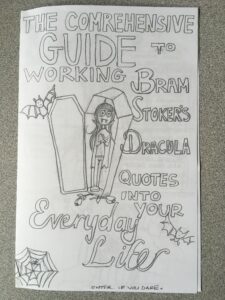 THE COMREHENSIVE
GUIDE TO
WORKING BRAM
STOKER'S
DRACULA
QUOTES
INTO
YOUR
Everyday
Life
ENTER IF YOU DARE.